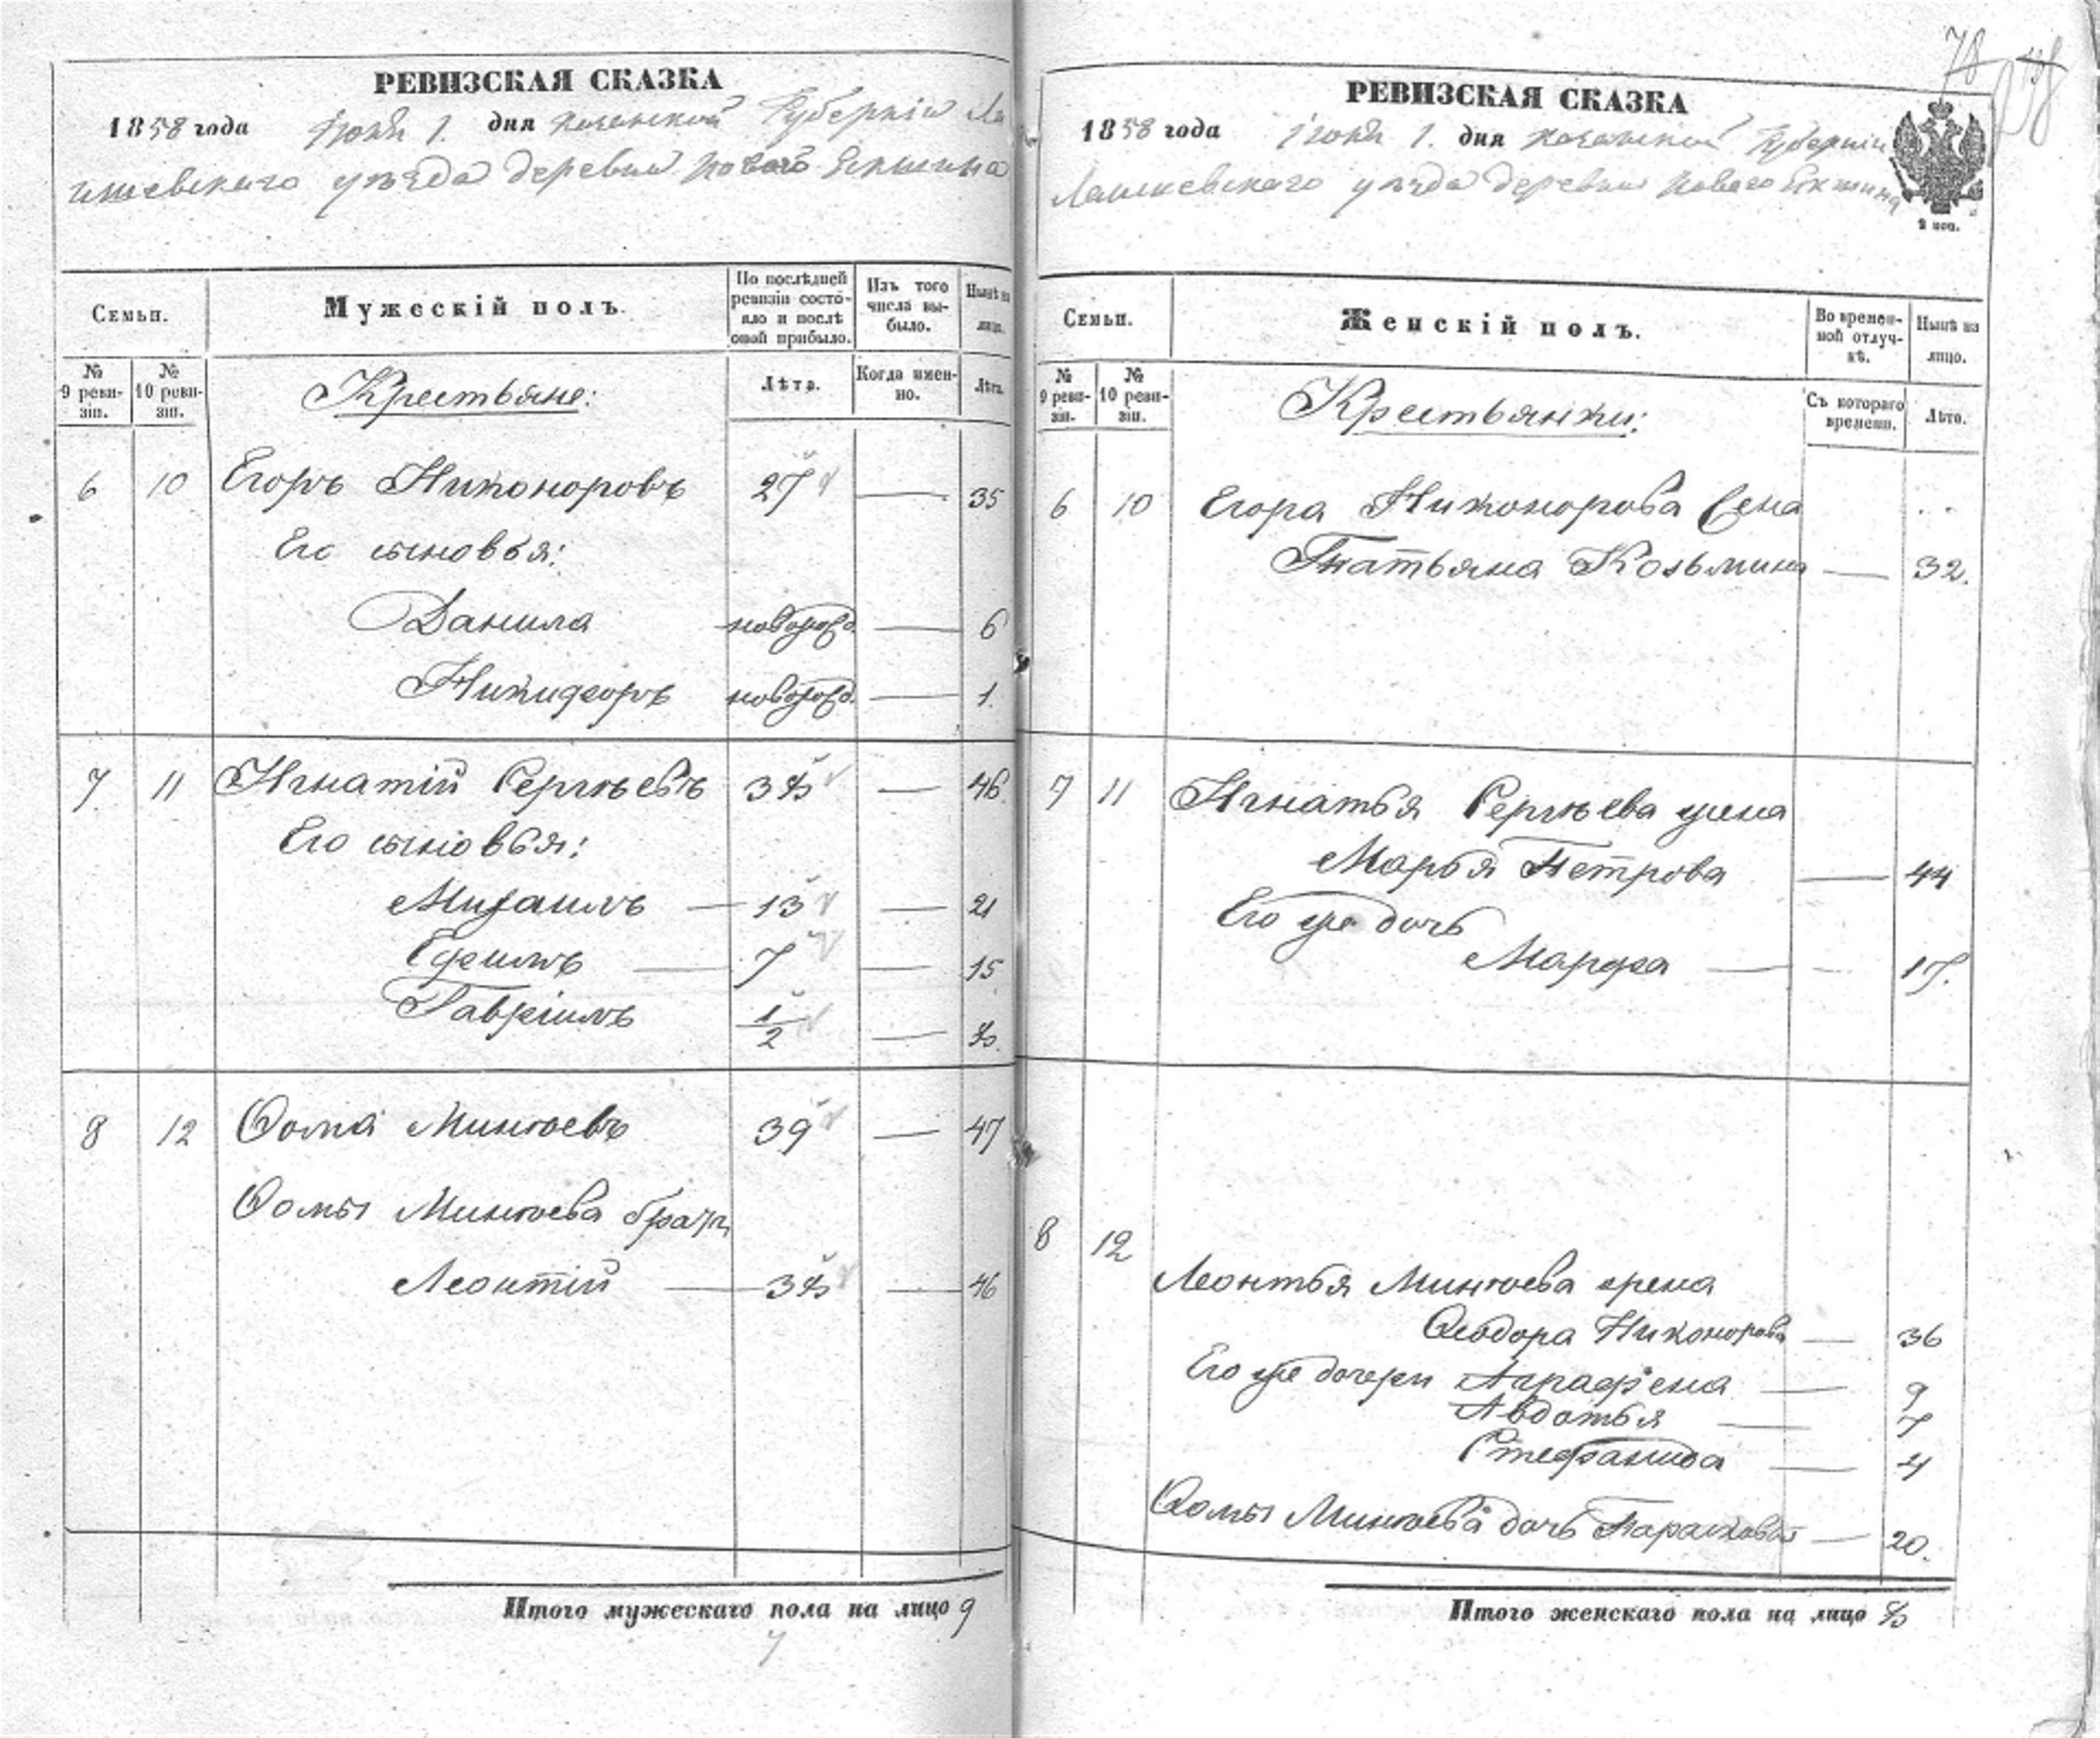 РЕВИЗСКАЯ СКАЗКА
1858 года Іюня 1. дня Казанской Губерніи Ла
ишевскаго уѣзда деревни Новаго Екшина
Семьи.
Мужескій полъ.
По послѣдней ревизіи состояло и послѣ оной прибыло.
Изъ того числа выбыло.
Нынѣ на лицо.
№ 9 ревизіи.
№ 10 ревизіи.
Крестьяне:
Лѣта.
Когда именно.
Лѣта.
6 10 Егоръ Никоноровъ 27 — 35
Его сыновья:
Данила новорожд. — 6
Никифоръ новорожд. — 1.
7. 11 Игнатій Сергѣевъ 38 — 46.
Его сыновья:
Михаилъ — 13 — 21
Ефимъ — 7 — 15
Гавріилъ 1/2 — 8.
8 12 Ѳома Минѣевъ 39 — 47
Ѳомы Минѣева братъ
Леонтій — 38 — 46
Итого мужескаго пола на лицо 9
7
78
РЕВИЗСКАЯ СКАЗКА
1858 года Іюня 1. дня Казанской Губерніи
Лаишевскаго уѣзда деревни Новаго Екшина
Семьи.
Женскій полъ.
Во временной отлучкѣ.
Нынѣ на лицо.
№ 9 ревизіи.
№ 10 ревизіи.
Крестьянки:
Съ котораго времени.
Лѣта.
6 10 Егора Никонорова жена
Татьяна Козьмина — 32.
7 11 Игнатья Сергѣева жена
Марья Петрова — 44
Его же дочь
Марфа — 17.
8 12
Леонтья Минѣева жена
Ѳеодора Никонорова — 36
Его же дочери Аграфена — 9
Авдотья — 7
Стефанида — 4
Ѳомы Минѣева дочь Парасковья — 20.
Итого женскаго пола на лицо 8